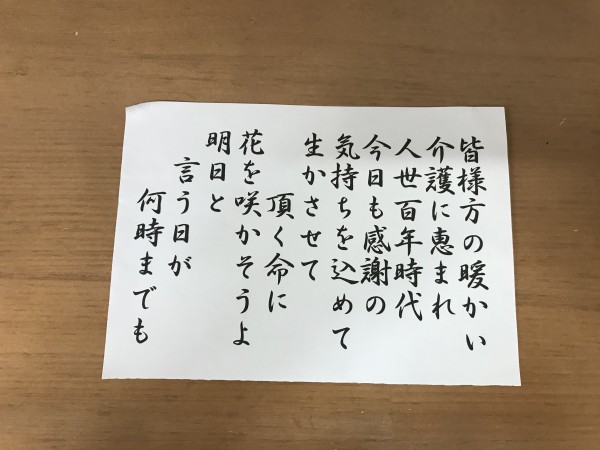 皆様方の暖かい
介護に恵まれ
人世百年時代
今日も感謝の
気持ちを込めて
生かさせて
頂く命に
花を咲かそうよ
明日と
言う日が
何時までも